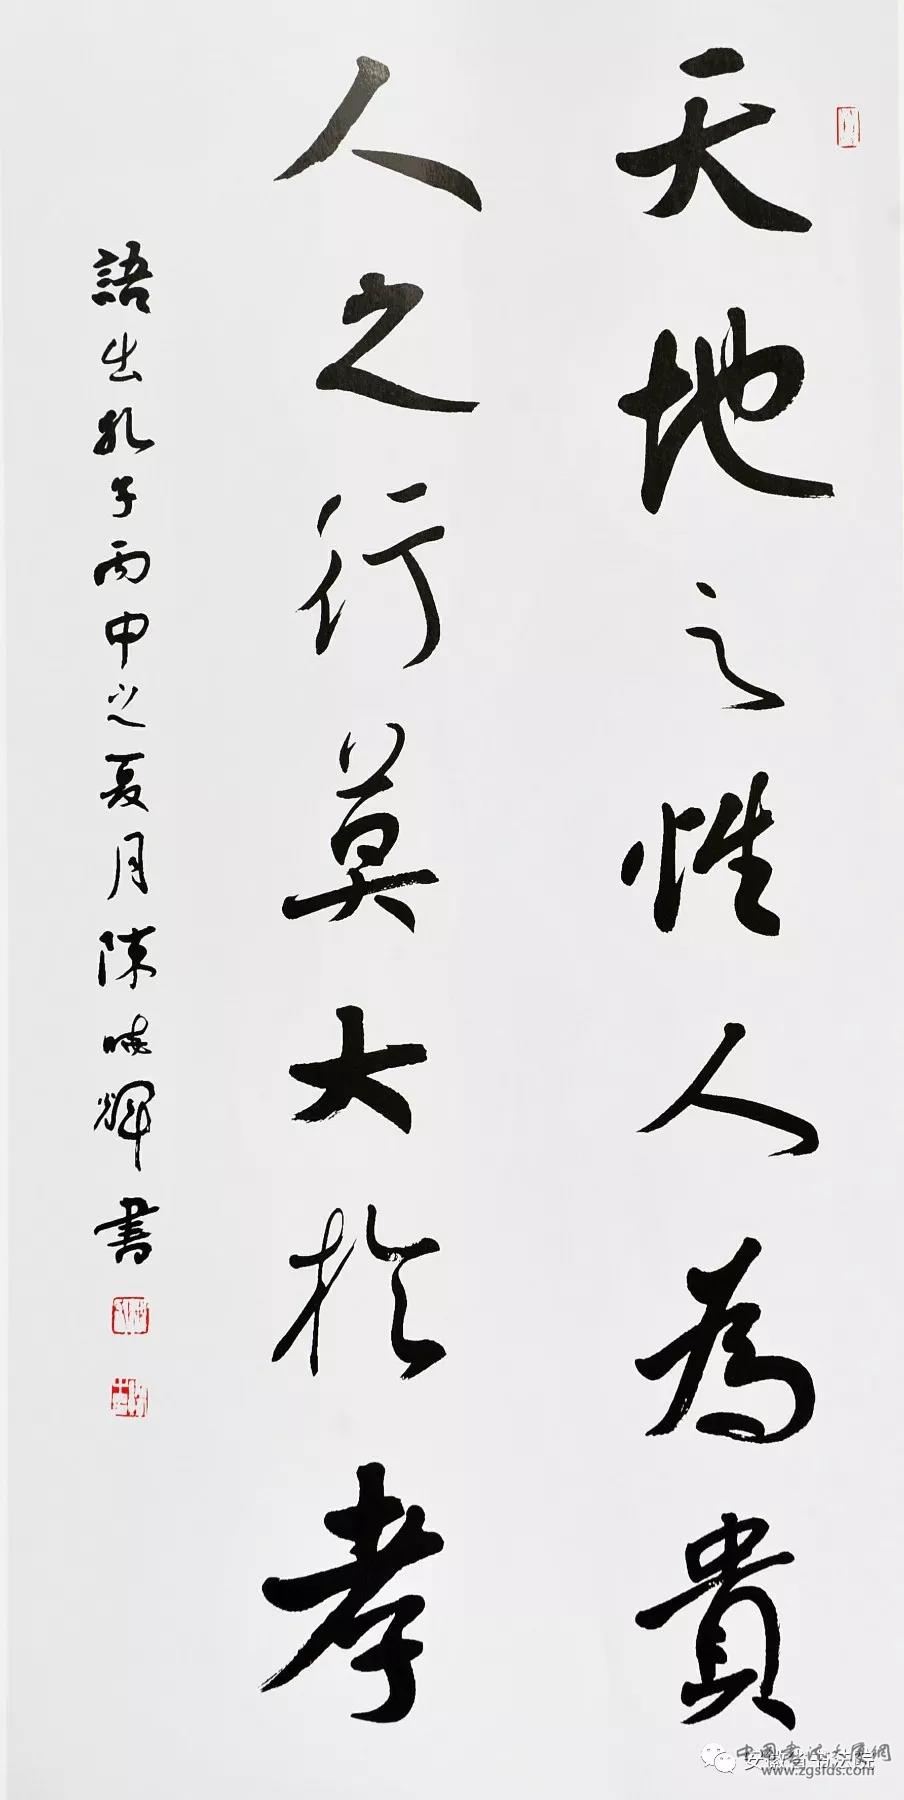 天地之性人為貴
人之行莫大於孝
語出孔子丙申之夏月陳曉輝書
中国书法大展網
安徽省书法院
www.zgsfds.com